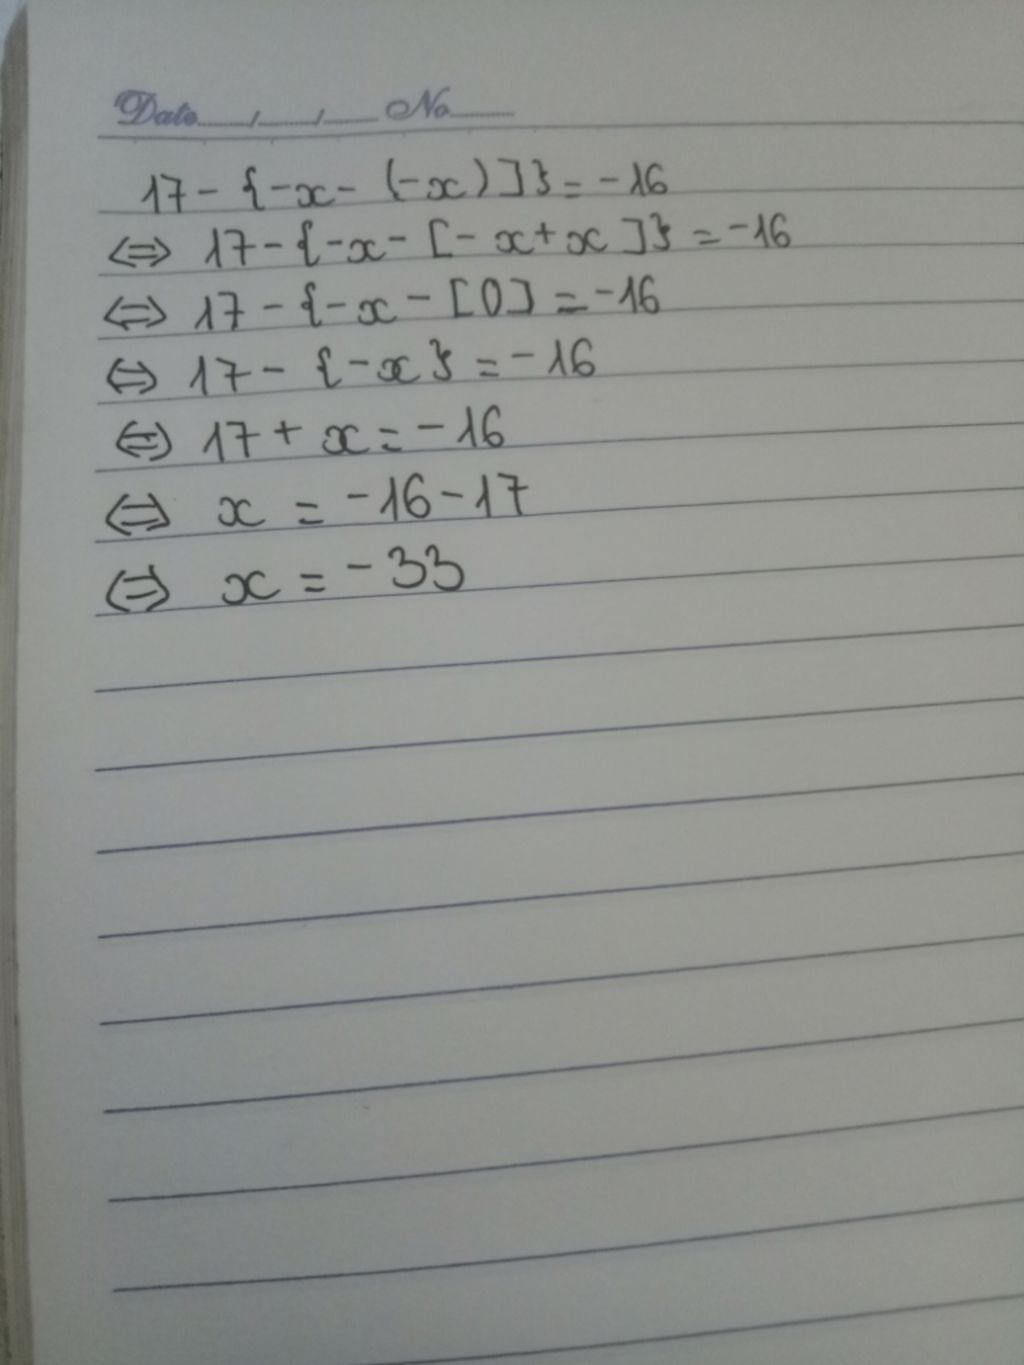 Date....../....../...... No.......
17 - {-x - (-x)]} = -16
⇔ 17 - {-x - [-x + x]} = -16
⇔ 17 - {-x - [0] = -16
⇔ 17 - {-x} = -16
⇔ 17 + x = -16
⇔ x = -16 - 17
⇔ x = -33